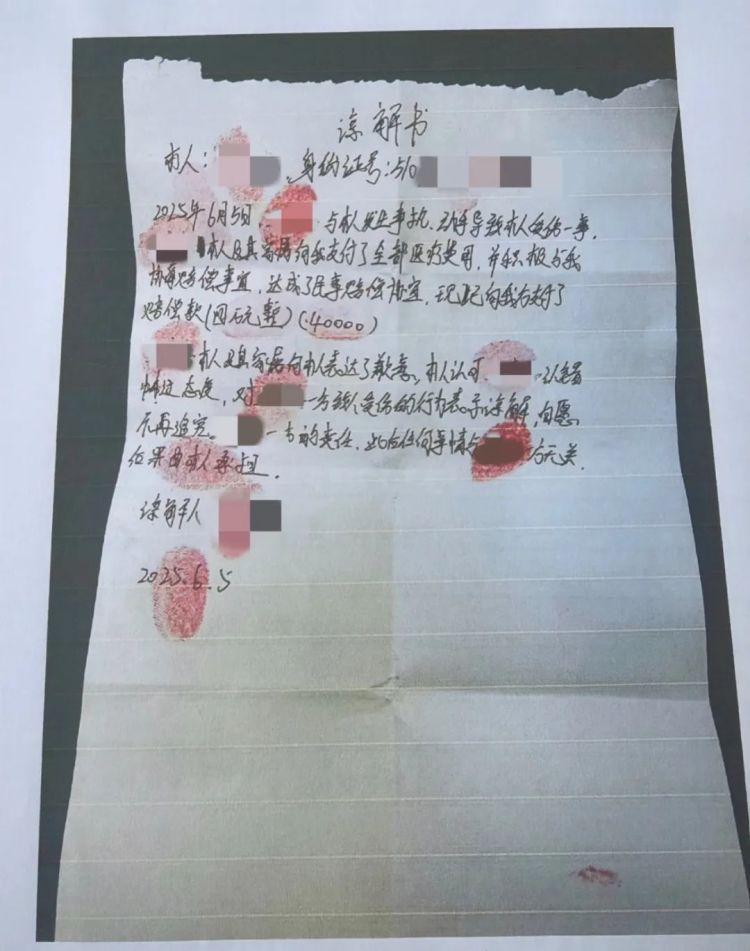 谅解书
本人: 身份证号:510
2025年6月5日 与本人发生争执,动手导致本人受伤一事,
本人及其家属向我支付了全部医疗费用,并积极与我
协商赔偿事宜,达成了民事赔偿协宜,现已向我方支付了
赔偿款(四万元整)(40000)
本人及其家属向本人表达了歉意。本人认可, 认错
态度,对 一方致人受伤的行为表示谅解,自愿
不再追究。 一方的责任,此后任何事情与 方无关.
后果由本人承担.
谅解人
2025.6.5